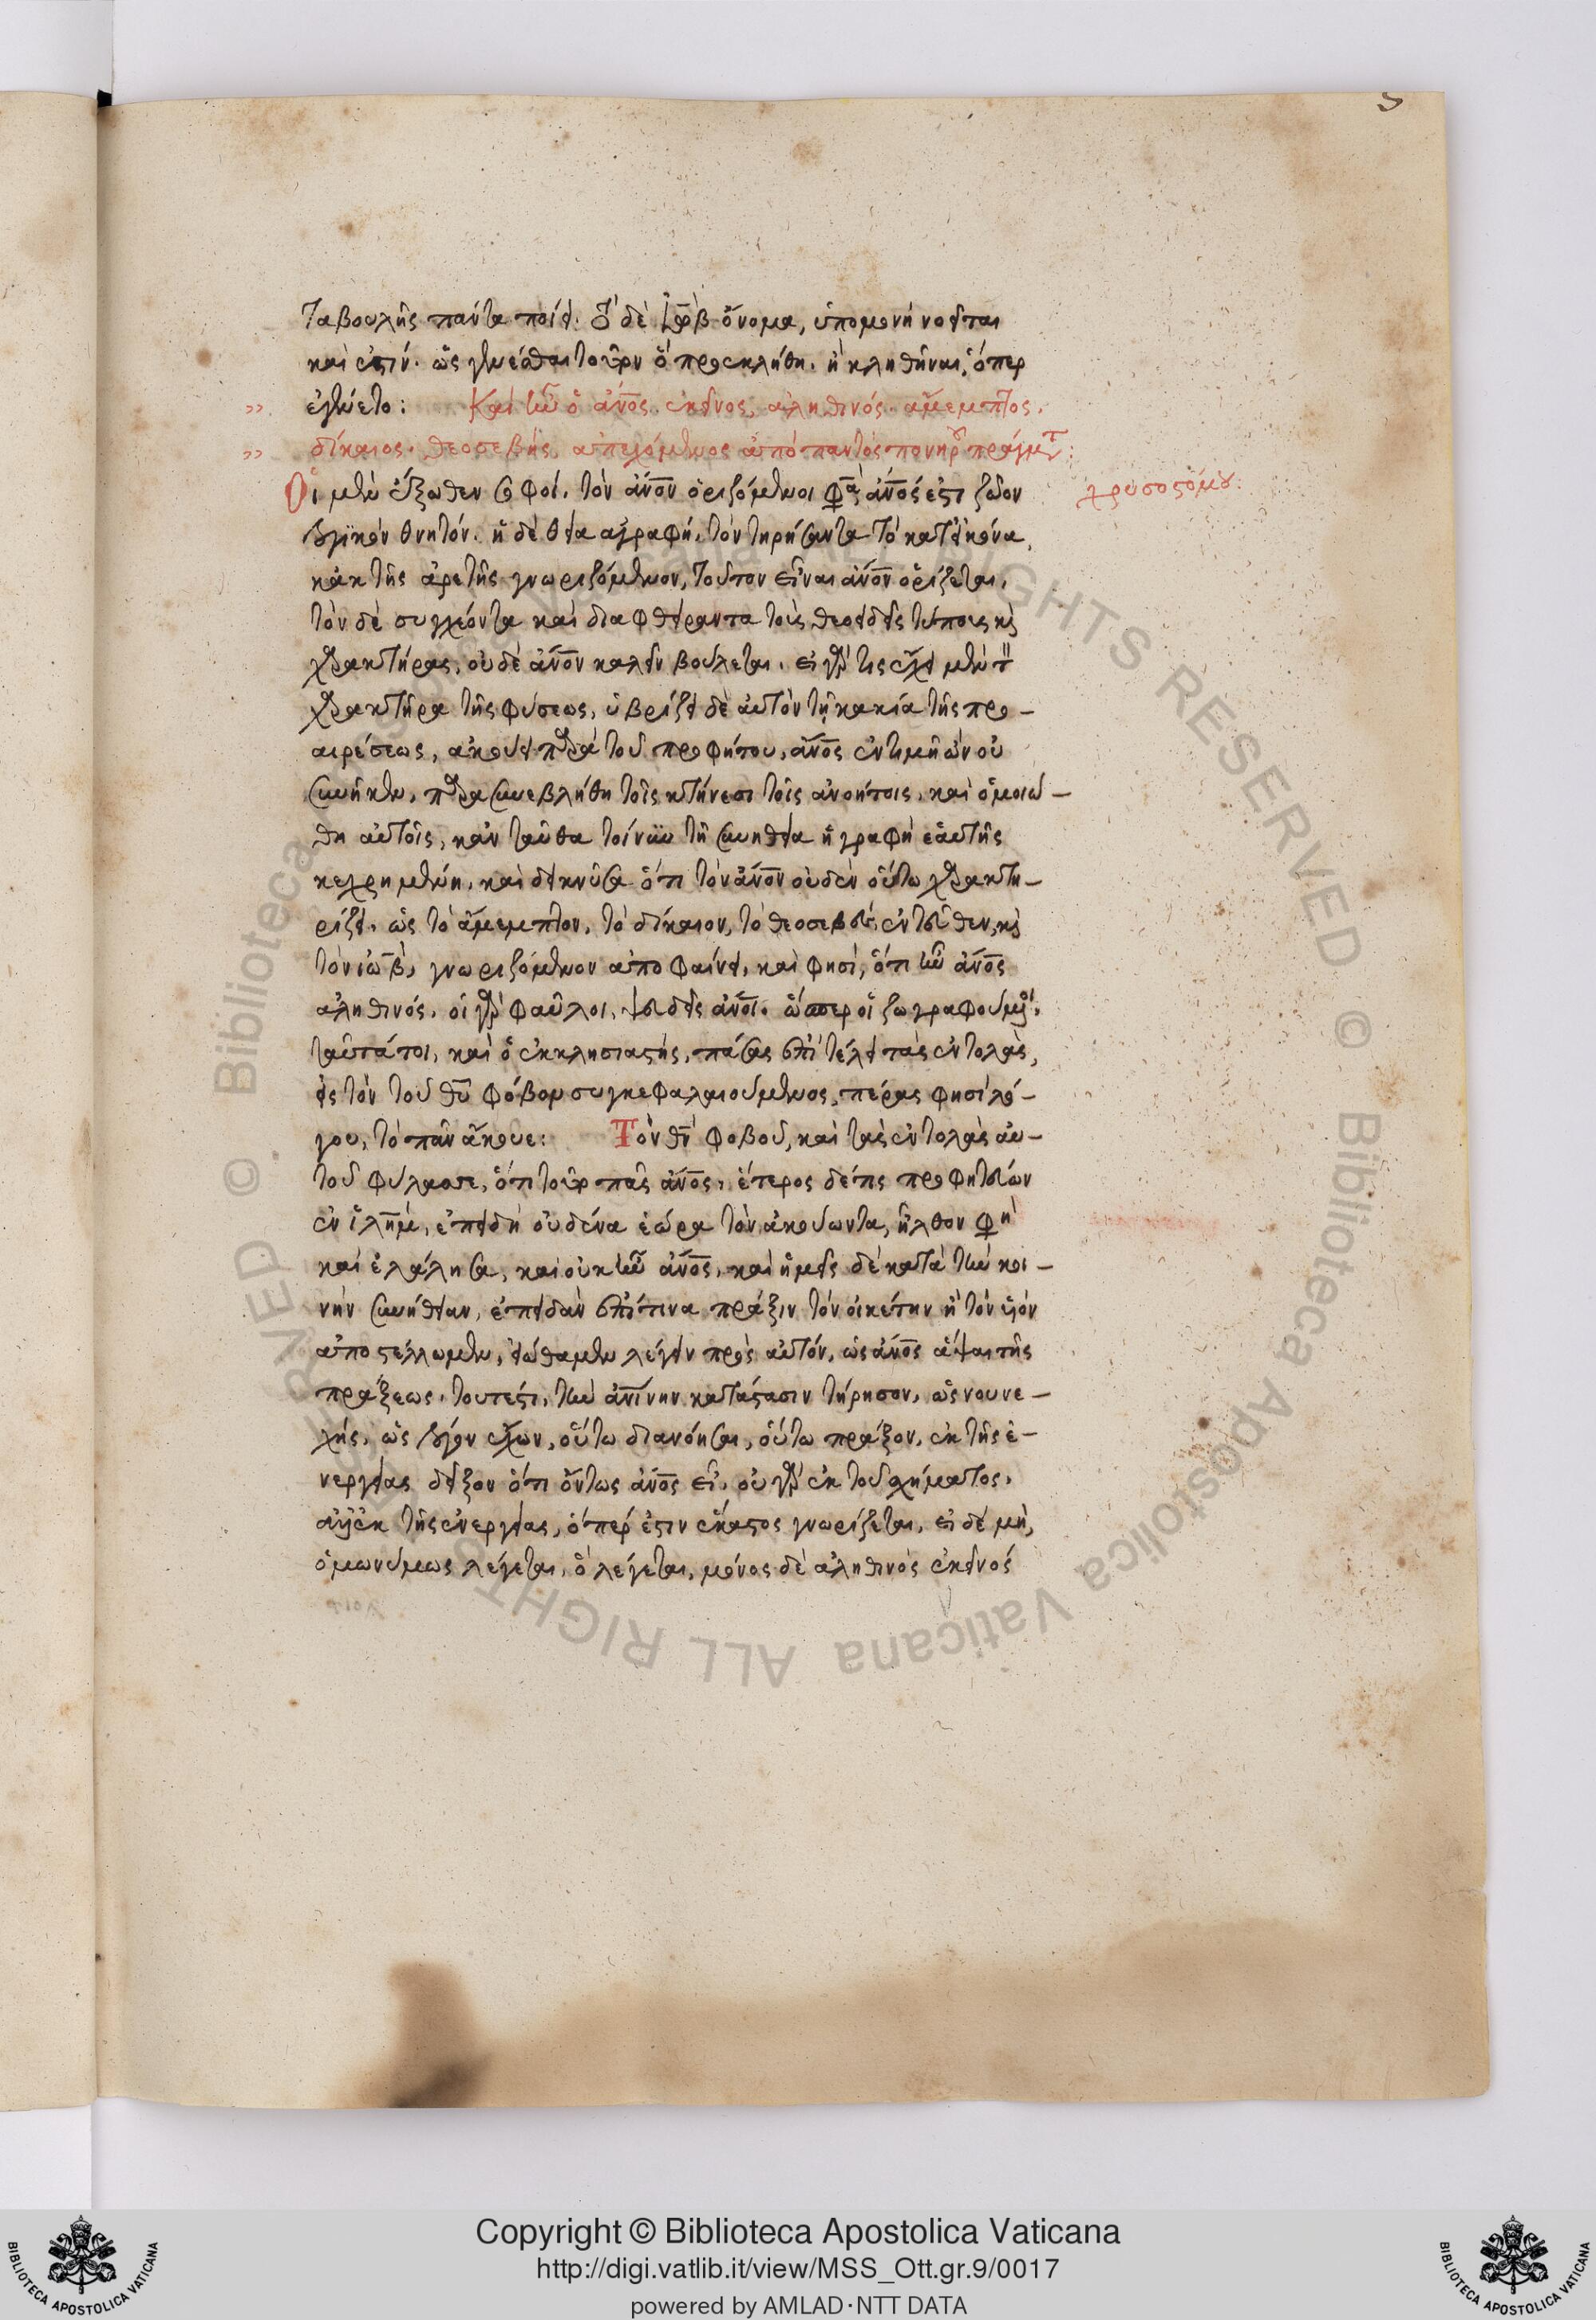 τα βουλῆς πάντα ποιεῖ. Τὸ δὲ Ἰὼβ ὄνομα, ὑπομονὴ νοεῖται
καὶ ἐστίν. ὡς γενέσθαι τοῦτον ὃ προσεκλήθη. ἢ κληθῆναι, ὅπερ
ἐγένετο: Καὶ ἦν ὁ ἄνος ἐκεῖνος, ἀληθινός. ἄμεμπτος.
δίκαιος. θεοσεβής. ἀπεχόμενος ἀπὸ παντὸς πονηροῦ πράγματος:
Οἱ μὲν ἔξωθεν σοφοί, τὸν ἄνον ὁριζόμενοι φασίν ἄνος ἐστι ζῶον
λογικὸν θνητόν. ἡ δὲ θεία γραφή, τὸν τηρήσαντα τὸ κατ εἰκόνα,
κἀκ τῆς ἀρετῆς γνωριζόμενον, τοῦτον εἶναι ἄνον ὁρίζεται.
τὸν δὲ συγχέοντα καὶ διαφθείραντα τοὺς θεοειδεῖς τύπους καὶ
χαρακτῆρας, οὐδὲ ἄνον καλεῖν βούλεται. εἰ γάρ τις ἔχει μὲν τὸν
χαρακτῆρα τῆς φύσεως, ὑβρίζει δὲ αὐτὸν τῇ κακία τῆς προ-
αιρέσεως, ἀκούει παρὰ τοῦ προφήτου, ἄνος ἐν τιμῇ ὢν οὐ
συνῆκεν, παρασυνεβλήθη τοῖς κτήνεσι τοῖς ἀνοήτοις, καὶ ὁμοιώ-
θη αὐτοῖς, κἀνταῦθα τοίνυν τῇ συνηθεία ἡ γραφὴ ἑαυτῆς
κεχρημένη, καὶ δεικνῦσα ὅτι τὸν ἄνον οὐδὲν οὕτω χαρακτη-
ρίζει, ὡς τὸ ἄμεμπτον, τὸ δίκαιον, τὸ θεοσεβές, ἐντεῦθεν καὶ
τὸν ἰώβ, γνωριζόμενον ἀποφαίνει, καὶ φησί, ὅτι ἦν ἄνος
ἀληθινός. οἱ γὰρ φαῦλοι, ψευδεῖς ἄνοι. ὥσπερ οἱ ζωγραφούμενοι.
ταῦτά τοι, καὶ ὁ ἐκκλησιαστής, πάσας ἐπιτέλει τὰς ἐντολάς,
εἰς τὸν τοῦ θυ φόβον συγκεφαλαιούμενος, πέρας φησὶ λό-
γου, τὸ πᾶν ἄκουε: Τὸν θν φοβοῦ, καὶ τὰς ἐντολὰς αὐ-
τοῦ φύλασσε, ὅτι τοῦτο πᾶς ἄνος. ἕτερος δέ τις προφητεύων
ἐν ἱλήμ, ἐπειδὴ οὐδένα ἑώρα τὸν ἀκούοντα, ἦλθον φησὶ
καὶ ἐλάλησα, καὶ οὐκ ἦν ἄνος. καὶ ἡμεῖς δὲ κατὰ τὴν κοι-
νὴν συνήθειαν, ἐπειδὰν ἐπί τινα πρᾶξιν τὸν οἰκέτην ἢ τὸν υἱὸν
ἀποστέλλωμεν, εἰώθαμεν λέγειν πρὸς αὐτόν, ὡς ἄνος ἅψαι τῆς
πράξεως. τουτέστι, τὴν ἀνίνην κατάστασιν τήρησον, ὡς νουνε-
χής, ὡς λόγον ἔχων, οὕτω διανόησαι, οὕτω πρᾶξον, ἐκ τῆς ἐ-
νεργείας δεῖξον ὅτι ὄντως ἄνος εἶ. οὐ γὰρ ἐκ τοῦ σχήματος,
ἀλλ ἐκ τῆς ἐνεργείας, ὅπερ ἐστιν ἕκαστος γνωρίζεται, εἰ δὲ μή,
ὁμωνύμως λέγεται, ὃ λέγεται, μόνος δὲ ἀληθινὸς ἐκεῖνός
χρυσοστόμου:
Copyright © Biblioteca Apostolica Vaticana
http://digi.vatlib.it/view/MSS_Ott.gr.9/0017
powered by AMLAD·NTT DATA